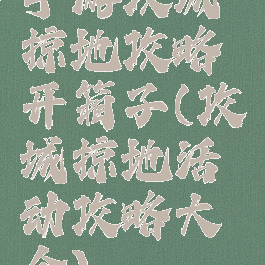 手游攻城
掠地攻略
开箱子(攻
城掠地活
动攻略大
全)